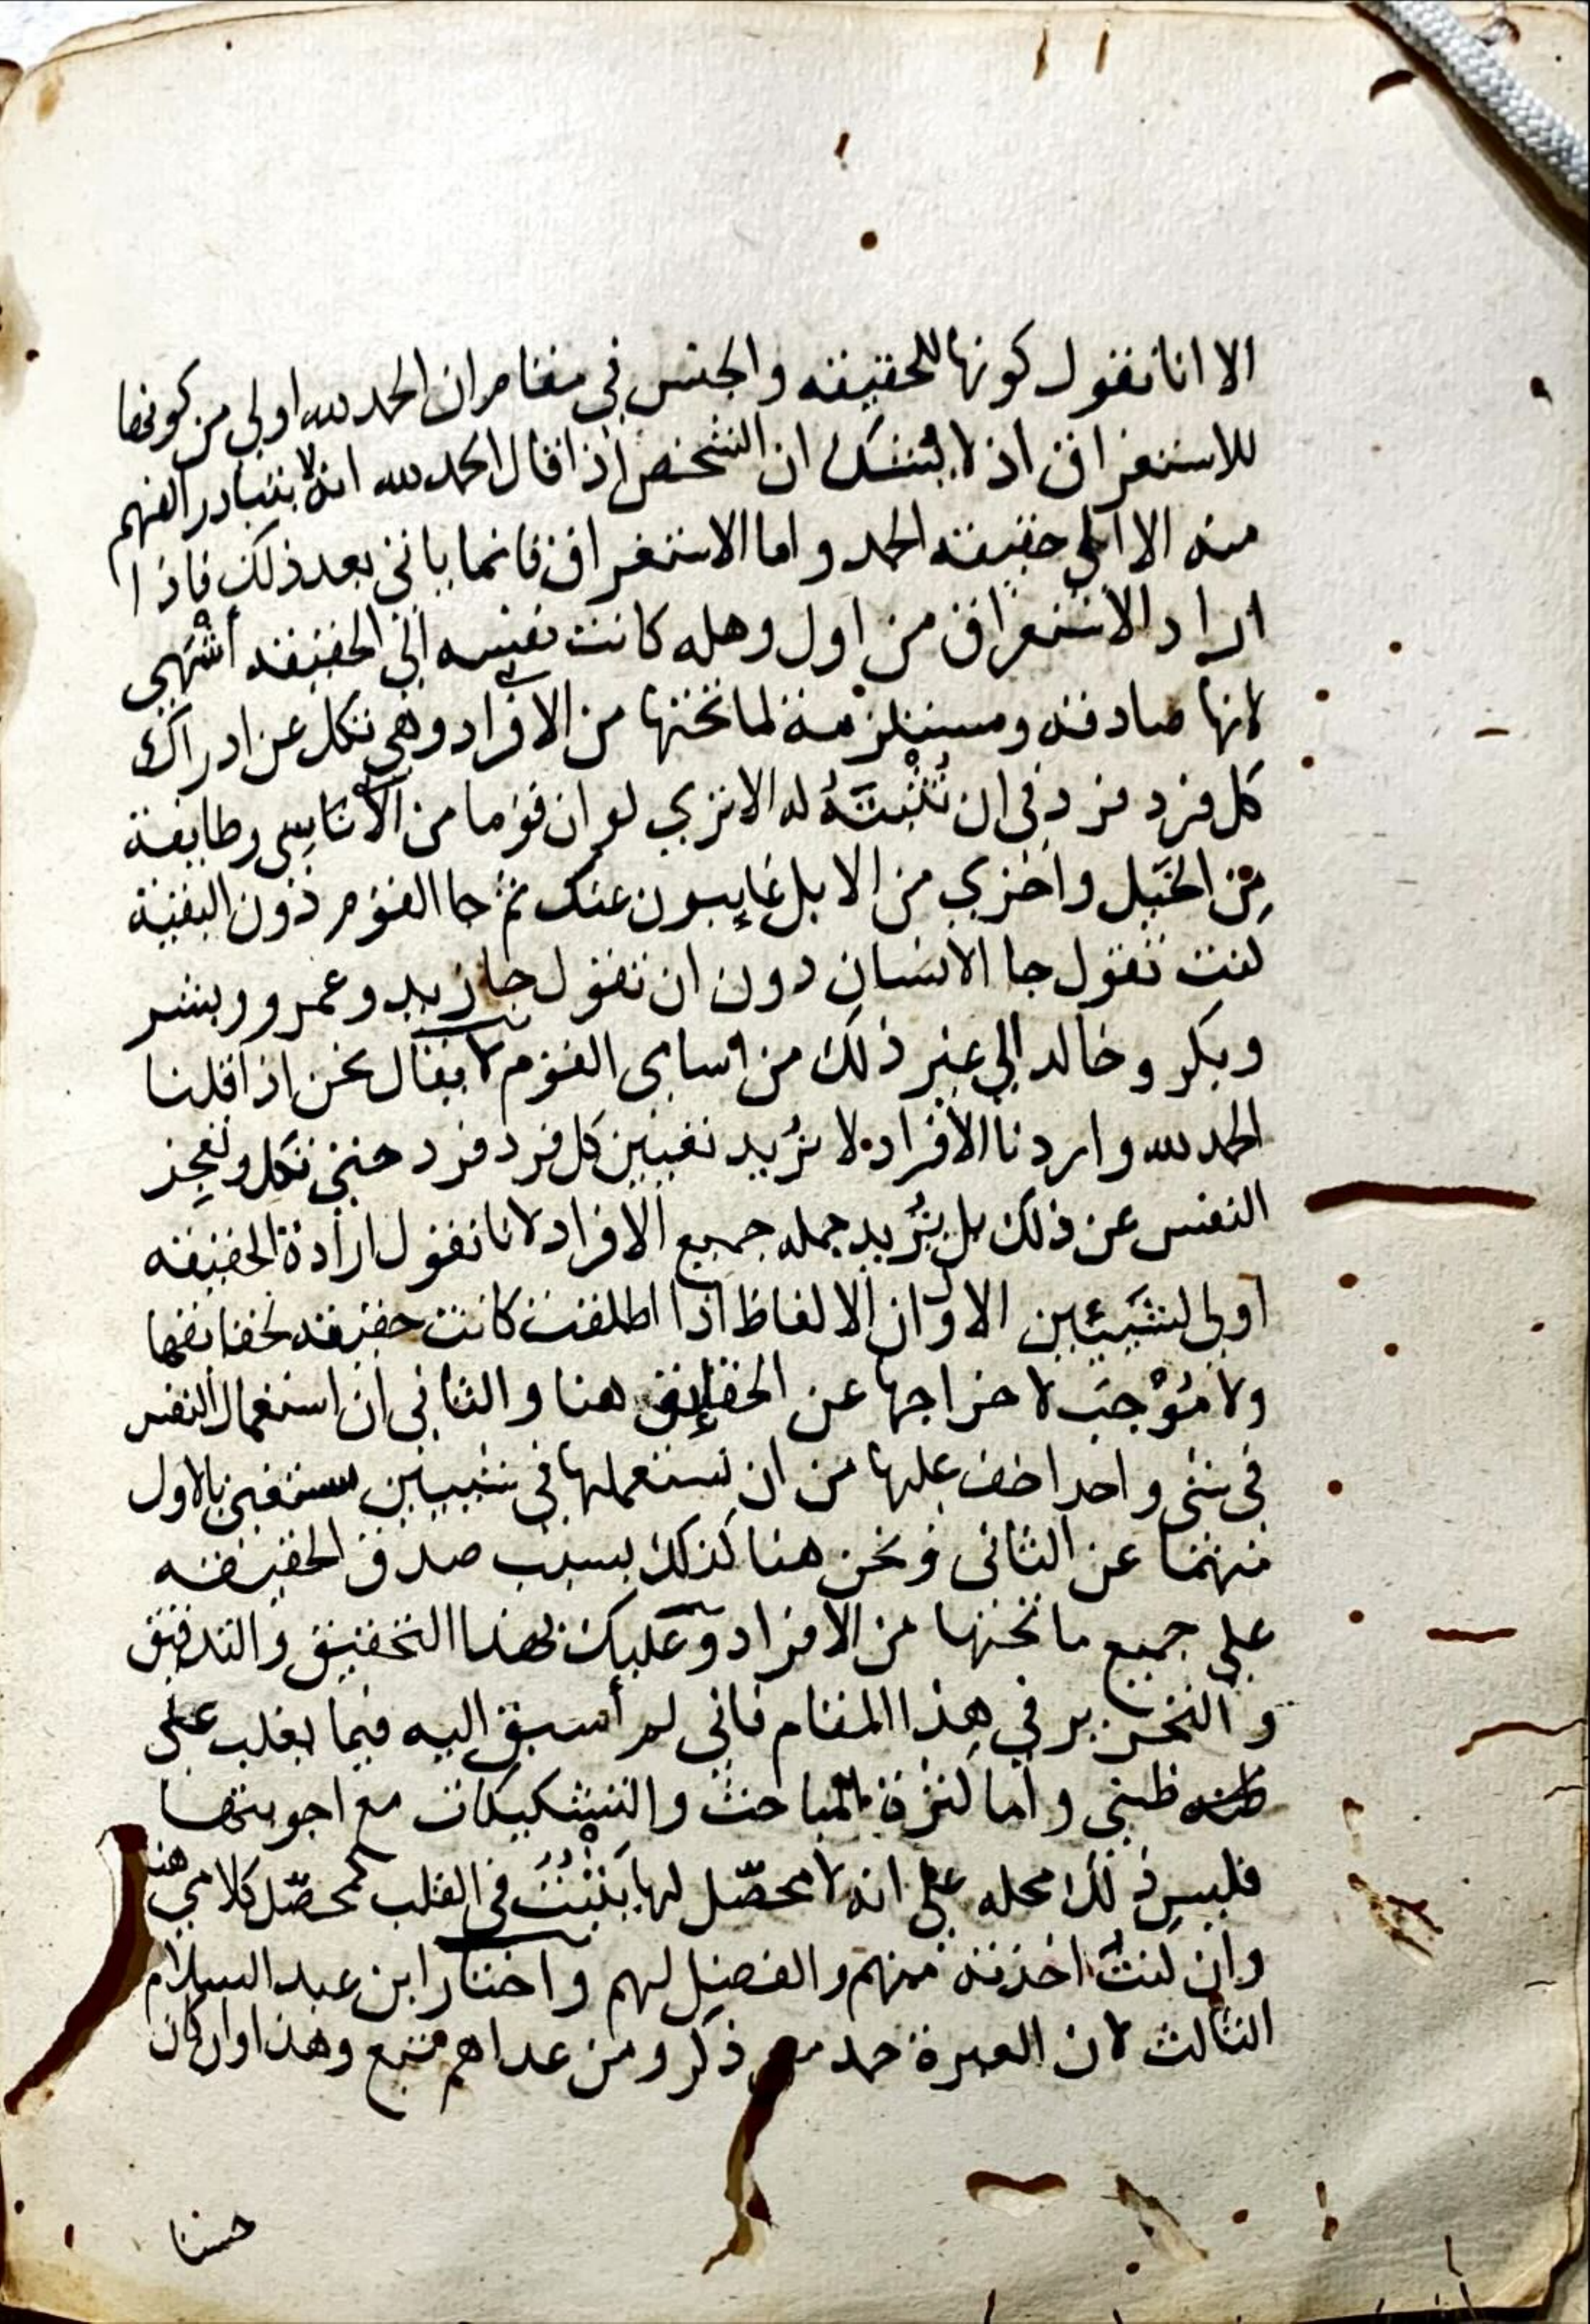 الا انا نقول كونها للحقيقه والجنس في مقام ان الحمد لله اولى من كونها
للاستغراق اذ لا يشك ان الشخص اذا قال الحمد لله انه لا يتبادر الفهم
منه الا الى حقيقه الحمد واما الاستغراق فانما ياتي بعد ذلك فاذا
اراد الاستغراق من اول وهله كانت نفسه الى الحقيقه أشهى
لانها صادقه ومستلزمة لما تحتها من الافراد وهي تكل عن ادراك
كل فرد فرد في ان تثبته له الا ترى لو ان قوما من الاناسي وطايفة
من الخيل واخري من الابل غايبون عنك ثم جا القوم دون البقية
لكنت تقول جا الانسان دون ان تقول جا زيد وعمرو وبشر
وبكر وخالد الي غير ذلك من اسامى القوم لا يقال نحن اذا قلنا
الحمد لله واردنا الافراد لا نريد تعيين كل فرد فرد حتى تكل وتعجز
النفس عن ذلك بل نريد جمله جميع الافراد لانا نقول ارادة الحقيقه
اولى لشيئين الاول ان الالفاظ اذا اطلقت كانت حقيقه لحقائقها
ولا مُوْجِبَ لاخراجها عن الحقائق هنا والثاني ان استعمال النفس
في شي واحد اخف عليها من ان تستعملها في شيين ستغنى بالاول
منهما عن الثانى ونحن هنا كذلك بسبب صدق الحقيقه
على جميع ما تحتها من الافراد وعليك بهذا التحقيق والتدقيق
والتحرير في هذا المقام فاني لم أسبق اليه فيما يغلب على
ظني واما كثرة المباحث والتشكيكات مع اجوبتها
فليس ذلك محله على انه لا محصّل لها يَثْبُتُ في القلب كمحصّل كلامي هنا
وان كنتُ اخذته منهم والفضل لهم واختار ابن عبد السلام
الثالث لان العبرة حمد من ذكر ومن عداهم تبع وهذا وان كان
حسنا